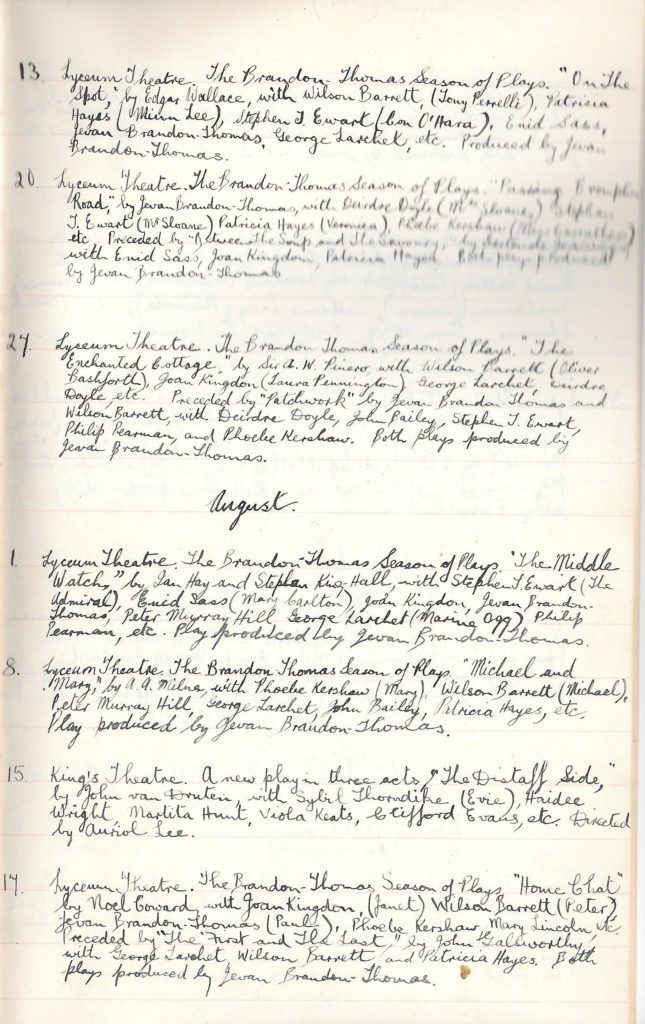 13. Lyceum Theatre. The Brandon-Thomas Season of Plays. "On The
Spot," by Edgar Wallace, with Wilson Barrett, (Tony Perrelli), Patricia
Hayes (Minn Lee), Stephen T. Ewart (Con O'Hara), Enid Sass,
Jevan Brandon-Thomas, George Larchet, etc. Produced by Jevan
Brandon-Thomas.
20. Lyceum Theatre. The Brandon-Thomas Season of Plays. "Passing Brompton
Road," by Jevan Brandon-Thomas, with Deirdre Doyle (Mrs Sloane) Stephen
T. Ewart (Mr Sloane) Patricia Hayes (Veronica), Phoebe Kershaw
etc. Preceded by "Between The Soup and The Savoury," by Gertrude
with Enid Sass, Joan Kingdon, Patricia Hayes. Both plays produced
by Jevan Brandon-Thomas
27. Lyceum Theatre. The Brandon Thomas Season of Plays. "The
Enchanted Cottage," by Sir A. W. Pinero, with Wilson Barrett (Oliver
Bashforth), Joan Kingdon (Laura Pennington) George Larchet, Deirdre
Doyle etc. Preceded by "Patchwork" by Jevan Brandon-Thomas and
Wilson Barrett, with Deirdre Doyle, John Bailey, Stephen T. Ewart,
Philip Pearman, and Phoebe Kershaw. Both plays produced by
Jevan Brandon-Thomas.
August.
1. Lyceum Theatre. The Brandon-Thomas Season of Plays. "The Middle
Watch," by Ian Hay and Stephen King-Hall, with Stephen T. Ewart (The
Admiral), Enid Sass (Mary Carlton), Joan Kingdon, Jevan Brandon-
Thomas, Peter Murray Hill, George Larchet (Marine Ogg) Philip
Pearman, etc. Play produced by Jevan Brandon-Thomas.
8. Lyceum Theatre. The Brandon Thomas Season of Plays "Michael and
Mary," by A. A. Milne, with Phoebe Kershaw (Mary), Wilson Barrett (Michael),
Peter Murray Hill, George Larchet, John Bailey, Patricia Hayes, etc.
Play produced by Jevan Brandon-Thomas.
15. King's Theatre. A new play in three acts, "The Distaff Side,"
by John van Druten, with Sybil Thorndike (Evie), Haidee
Wright, Martita Hunt, Viola Keats, Clifford Evans, etc. Directed
by Auriol Lee.
17. Lyceum Theatre. The Brandon-Thomas Season of Plays "Home Chat"
by Noel Coward, with Joan Kingdon, (Janet) Wilson Barrett (Peter)
Jevan Brandon-Thomas (Paul), Phoebe Kershaw, Mary Lincoln etc.
Preceded by "The First and The Last," by John Galsworthy,
with George Larchet, Wilson Barrett and Patricia Hayes. Both
plays produced by Jevan Brandon-Thomas.